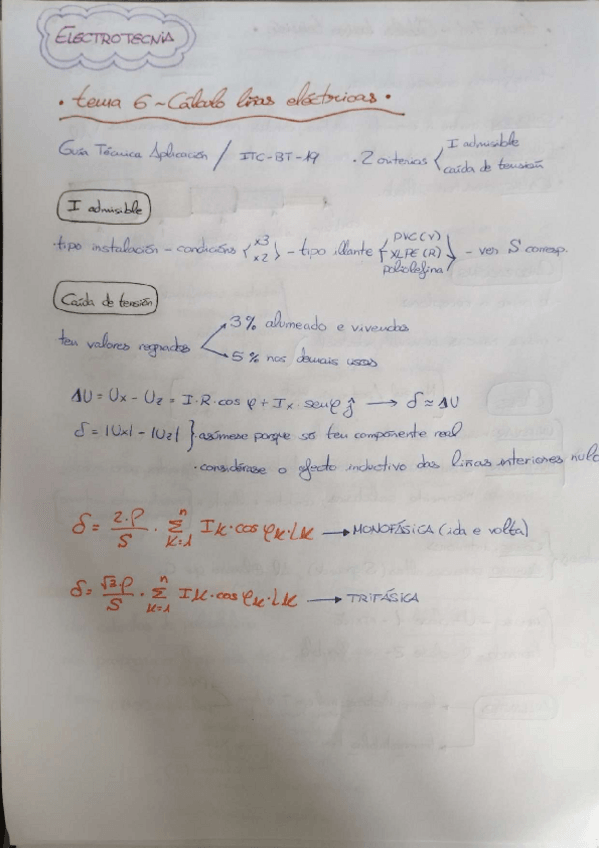 ELECTROTECNIA
• tema 6 ~ Cálculo liñas eléctricas •
Guía Técnica Aplicación / ITC-BT-19 • 2 criterios { I admisible
caída de tensión
I admisible
• tipo instalación - condicións { x3 x2 } - tipo illante { PVC (V) XLPE (R) poliolefina } - ver S corresp.
Caída de tensión
ten valores regrados
3% alumeado e vivendas
5% nos demais usos
ΔU = Ux - Uz = I·R·cos φ + Ix·senφ ĵ → δ ≈ ΔU
δ = |Ux| - |Uz| } asúmese porque só ten compoñente real
• considérase o efecto inductivo das liñas interiores nulo
δ = 2·ρ/S · Σ(K=1, n) IK·cos φK·LK → MONOFÁSICA (ida e volta)
δ = √3·ρ/S · Σ(K=1, n) IK·cos φK·LK → TRIFÁSICA